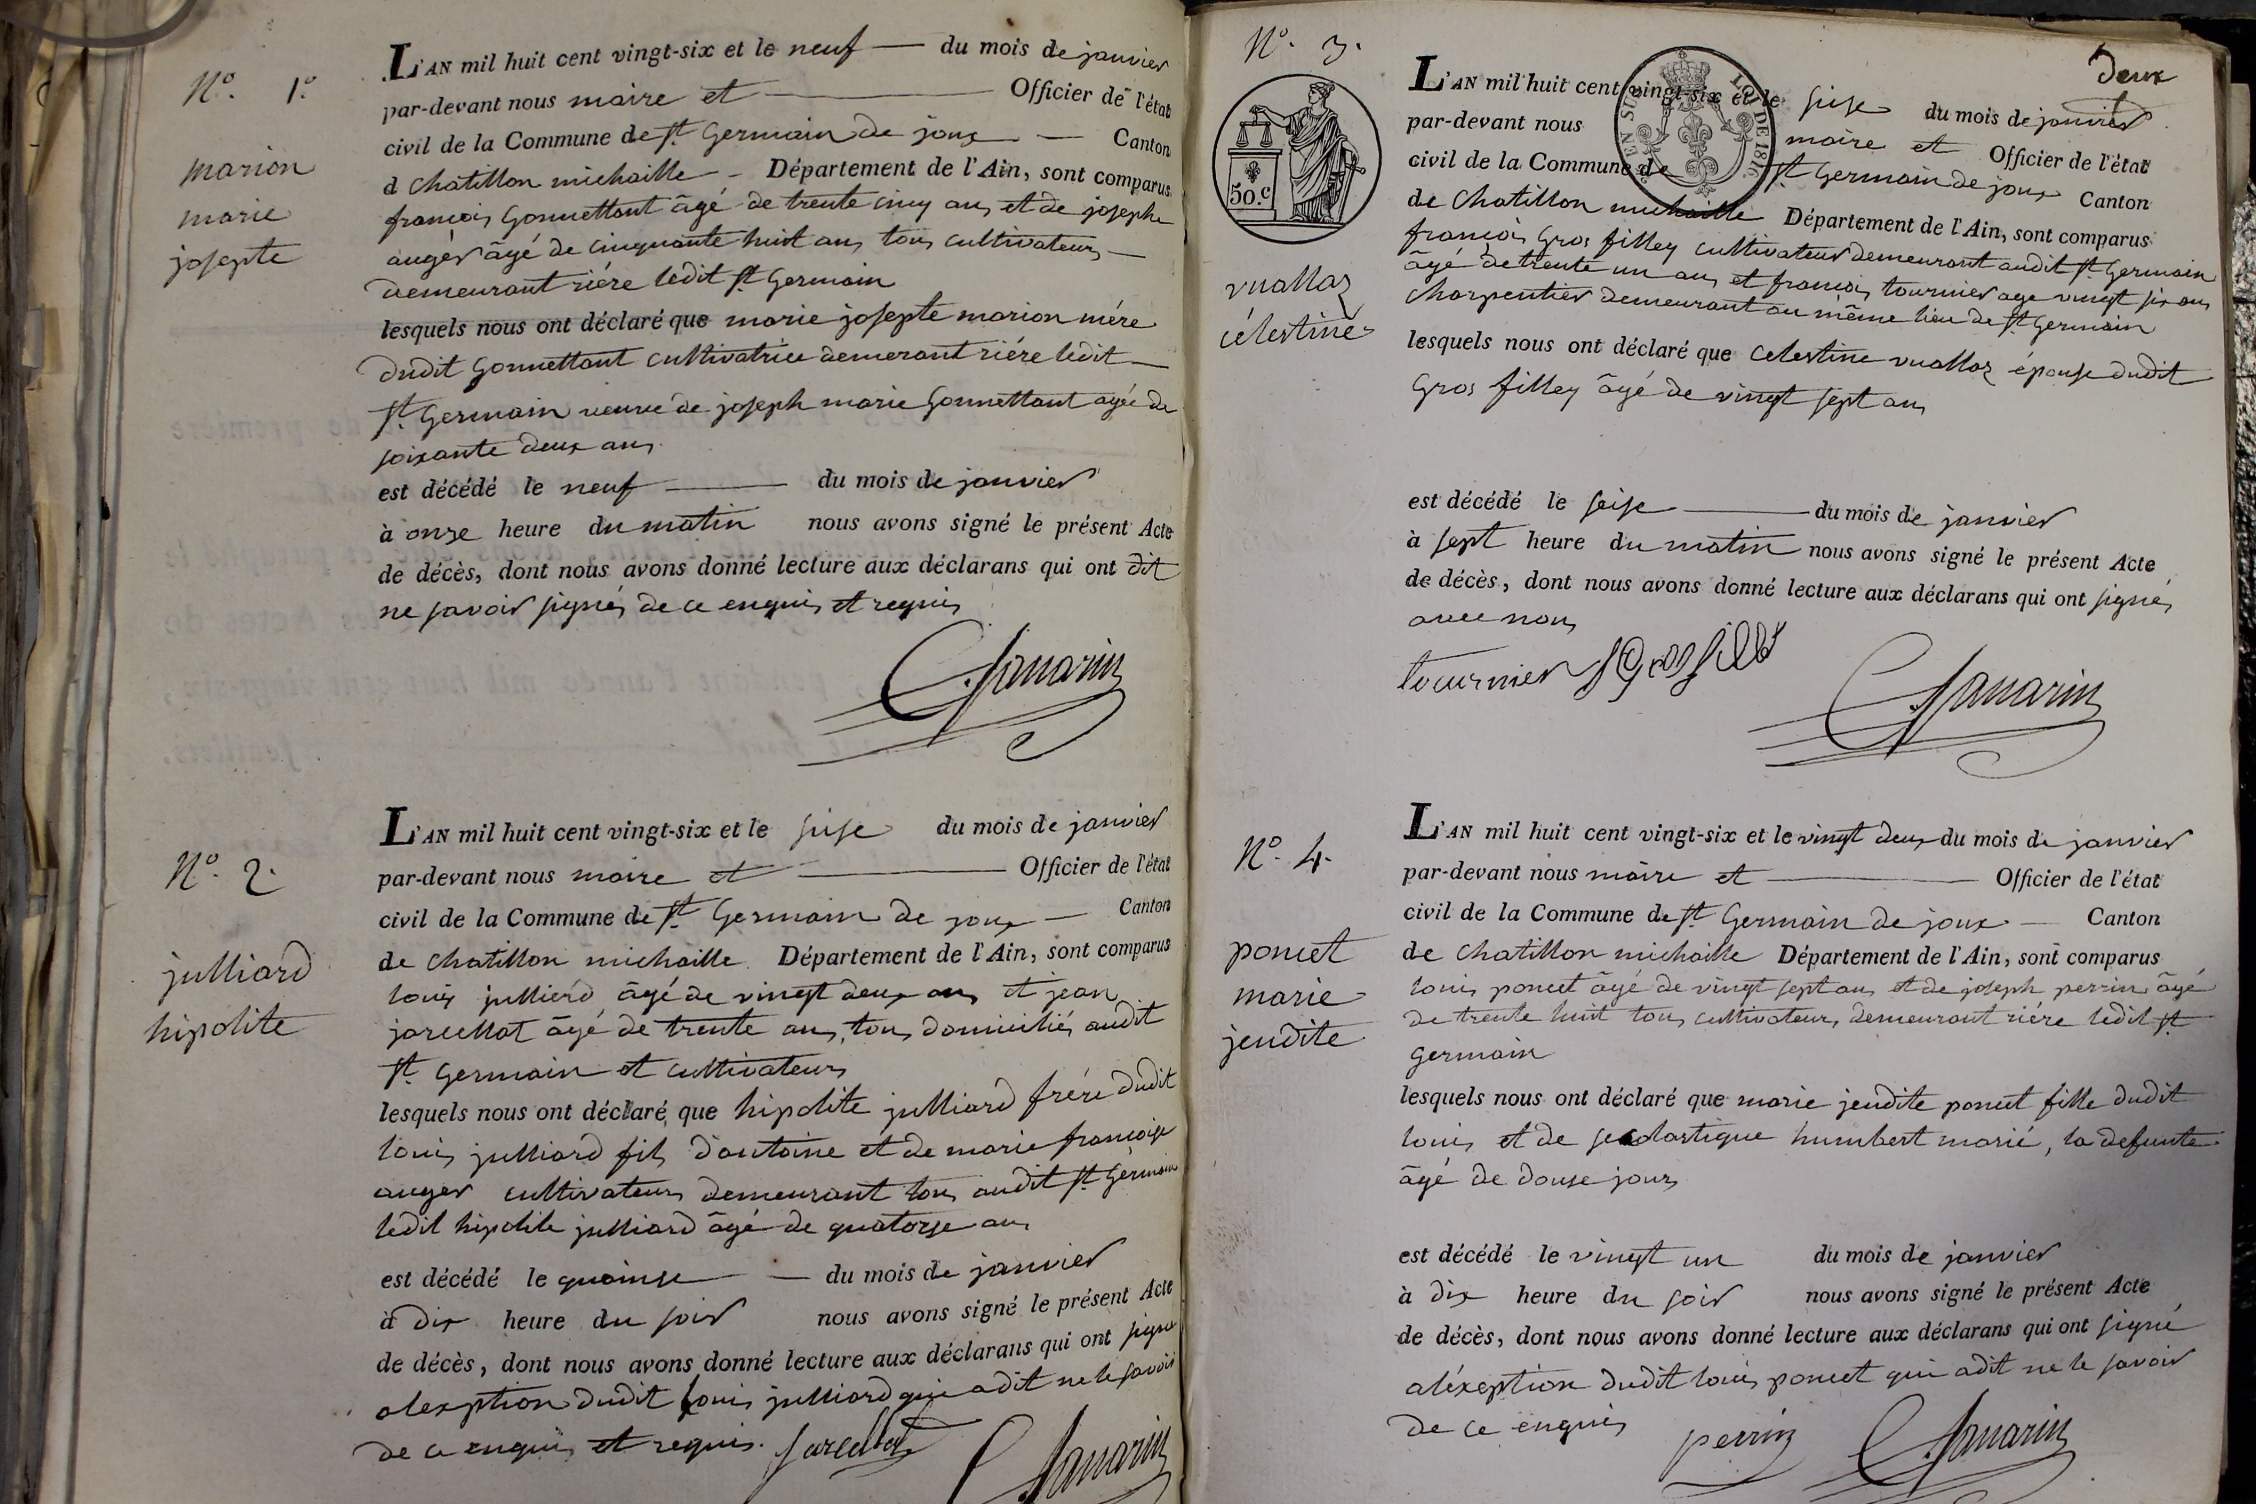 N.º 1.º
marion
marie
josepte
L'AN mil huit cent vingt-six et le neuf du mois de janvier
par-devant nous maire et Officier de l'état
civil de la Commune de St. Germain de joux Canton
d chatillon michaille Département de l'Ain, sont comparus
francois Gonnettant âgé de trente cinq ans et de josephe
auger âgé de cinquante huit ans tous cultivateurs
demeurant riére ledit St Germain
lesquels nous ont déclaré que marie josepte marion mére
dudit Gonnettant cultivatrice demerant riére ledit
St. Germain veuve de joseph marie Gonnettant agée de
soixante deux ans
est décédé le neuf du mois de janvier
à onze heure du matin nous avons signé le présent Acte
de décès, dont nous avons donné lecture aux déclarans qui ont dit
ne savoir signés de ce enquis et requis
N.º 2.
julliard
hipolite
L'AN mil huit cent vingt-six et le seise du mois de janvier
par-devant nous maire et Officier de l'état
civil de la Commune de St. Germain de joux Canton
de chatillon michaille Département de l'Ain, sont comparus
louis jullierd âgé de vingt deux ans et jean
jarcellat âgé de trente ans, tous domiciliés audit
St. Germain et cultivateurs
lesquels nous ont déclaré que hipolite julliard frére dudit
louis julliard fils d'antoine et de marie francoise
auger cultivateurs demeurant tous audit St. Germain
ledit hipolite julliard âgé de quatorse ans
est décédé le quainse du mois de janvier
à dix heure du soir nous avons signé le présent Acte
de décès, dont nous avons donné lecture aux déclarans qui ont signé
alexeption dudit louis julliard qui adit ne le savoir
de ce enquis et requis. Jarcellat
N.º 3.
deux
50.c
LOI DE 1816.
vuallaz
célestine
L'AN mil huit cent vingt-six et le seise du mois de janvier
par-devant nous maire et Officier de l'état
civil de la Commune de St Germain de joux Canton
de chatillon michaille Département de l'Ain, sont comparus
francois Gros filley cultivateur demeurant audit St. Germain
âgé de trente un ans et francois tournier age vingt six ans
charpentier demeurant au même lieu de St Germain
lesquels nous ont déclaré que celestine vuallaz épouse dudit
Gros filley âgé de vingt sept ans
est décédé le seise du mois de janvier
à sept heure du matin nous avons signé le présent Acte
de décès, dont nous avons donné lecture aux déclarans qui ont signés
avec nous
tournier
N.º 4.
poncet
marie
jeudite
L'AN mil huit cent vingt-six et le vingt deux du mois de janvier
par-devant nous maire et Officier de l'état
civil de la Commune de St. Germain de joux Canton
de chatillon michaille Département de l'Ain, sont comparus
louis poncet âgé de vingt sept ans et de joseph perrin âgé
de trente huit tous cultivateurs demeurant riére ledit St
germain
lesquels nous ont déclaré que marie jeudite poncet fille dudit
louis et de scolastique humbert marié, la defunte
âgé de douse jours
est décédé le vingt un du mois de janvier
à dix heure du soir nous avons signé le présent Acte
de décès, dont nous avons donné lecture aux déclarans qui ont signé
aléxeption dudit louis poncet qui adit ne le savoir
de ce enquis
perrin